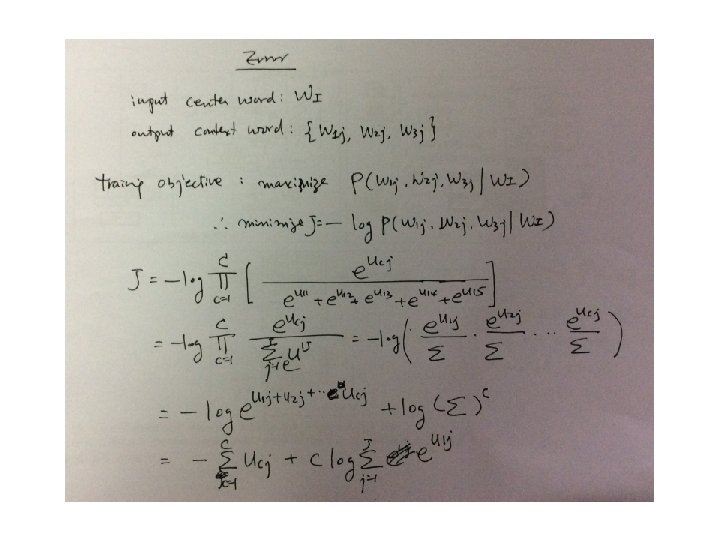 Error
input center word: W_I
output context word: {W_1j, W_2j, W_3j}
training objective: maximize P(W_1j, W_2j, W_3j | W_I)
∴ minimize J = - log P(W_1j, W_2j, W_3j | W_I)
J = -log ∏_{c=1}^{C} [ e^{u_cj} / (e^{u_11} + e^{u_12} + e^{u_13} + e^{u_14} + e^{u_15}) ]
= -log ∏_{c=1}^{C} e^{u_cj} / ∑_{j=1}^{J} e^{u_1j} = -log( e^{u_1j}/∑ · e^{u_2j}/∑ ··· e^{u_cj}/∑ )
= - log e^{u_1j + u_2j + ··· u_cj} + log (∑)^C
= - ∑_{c=1}^{C} u_cj + C log ∑_{j=1}^{J} e^{u_1j}